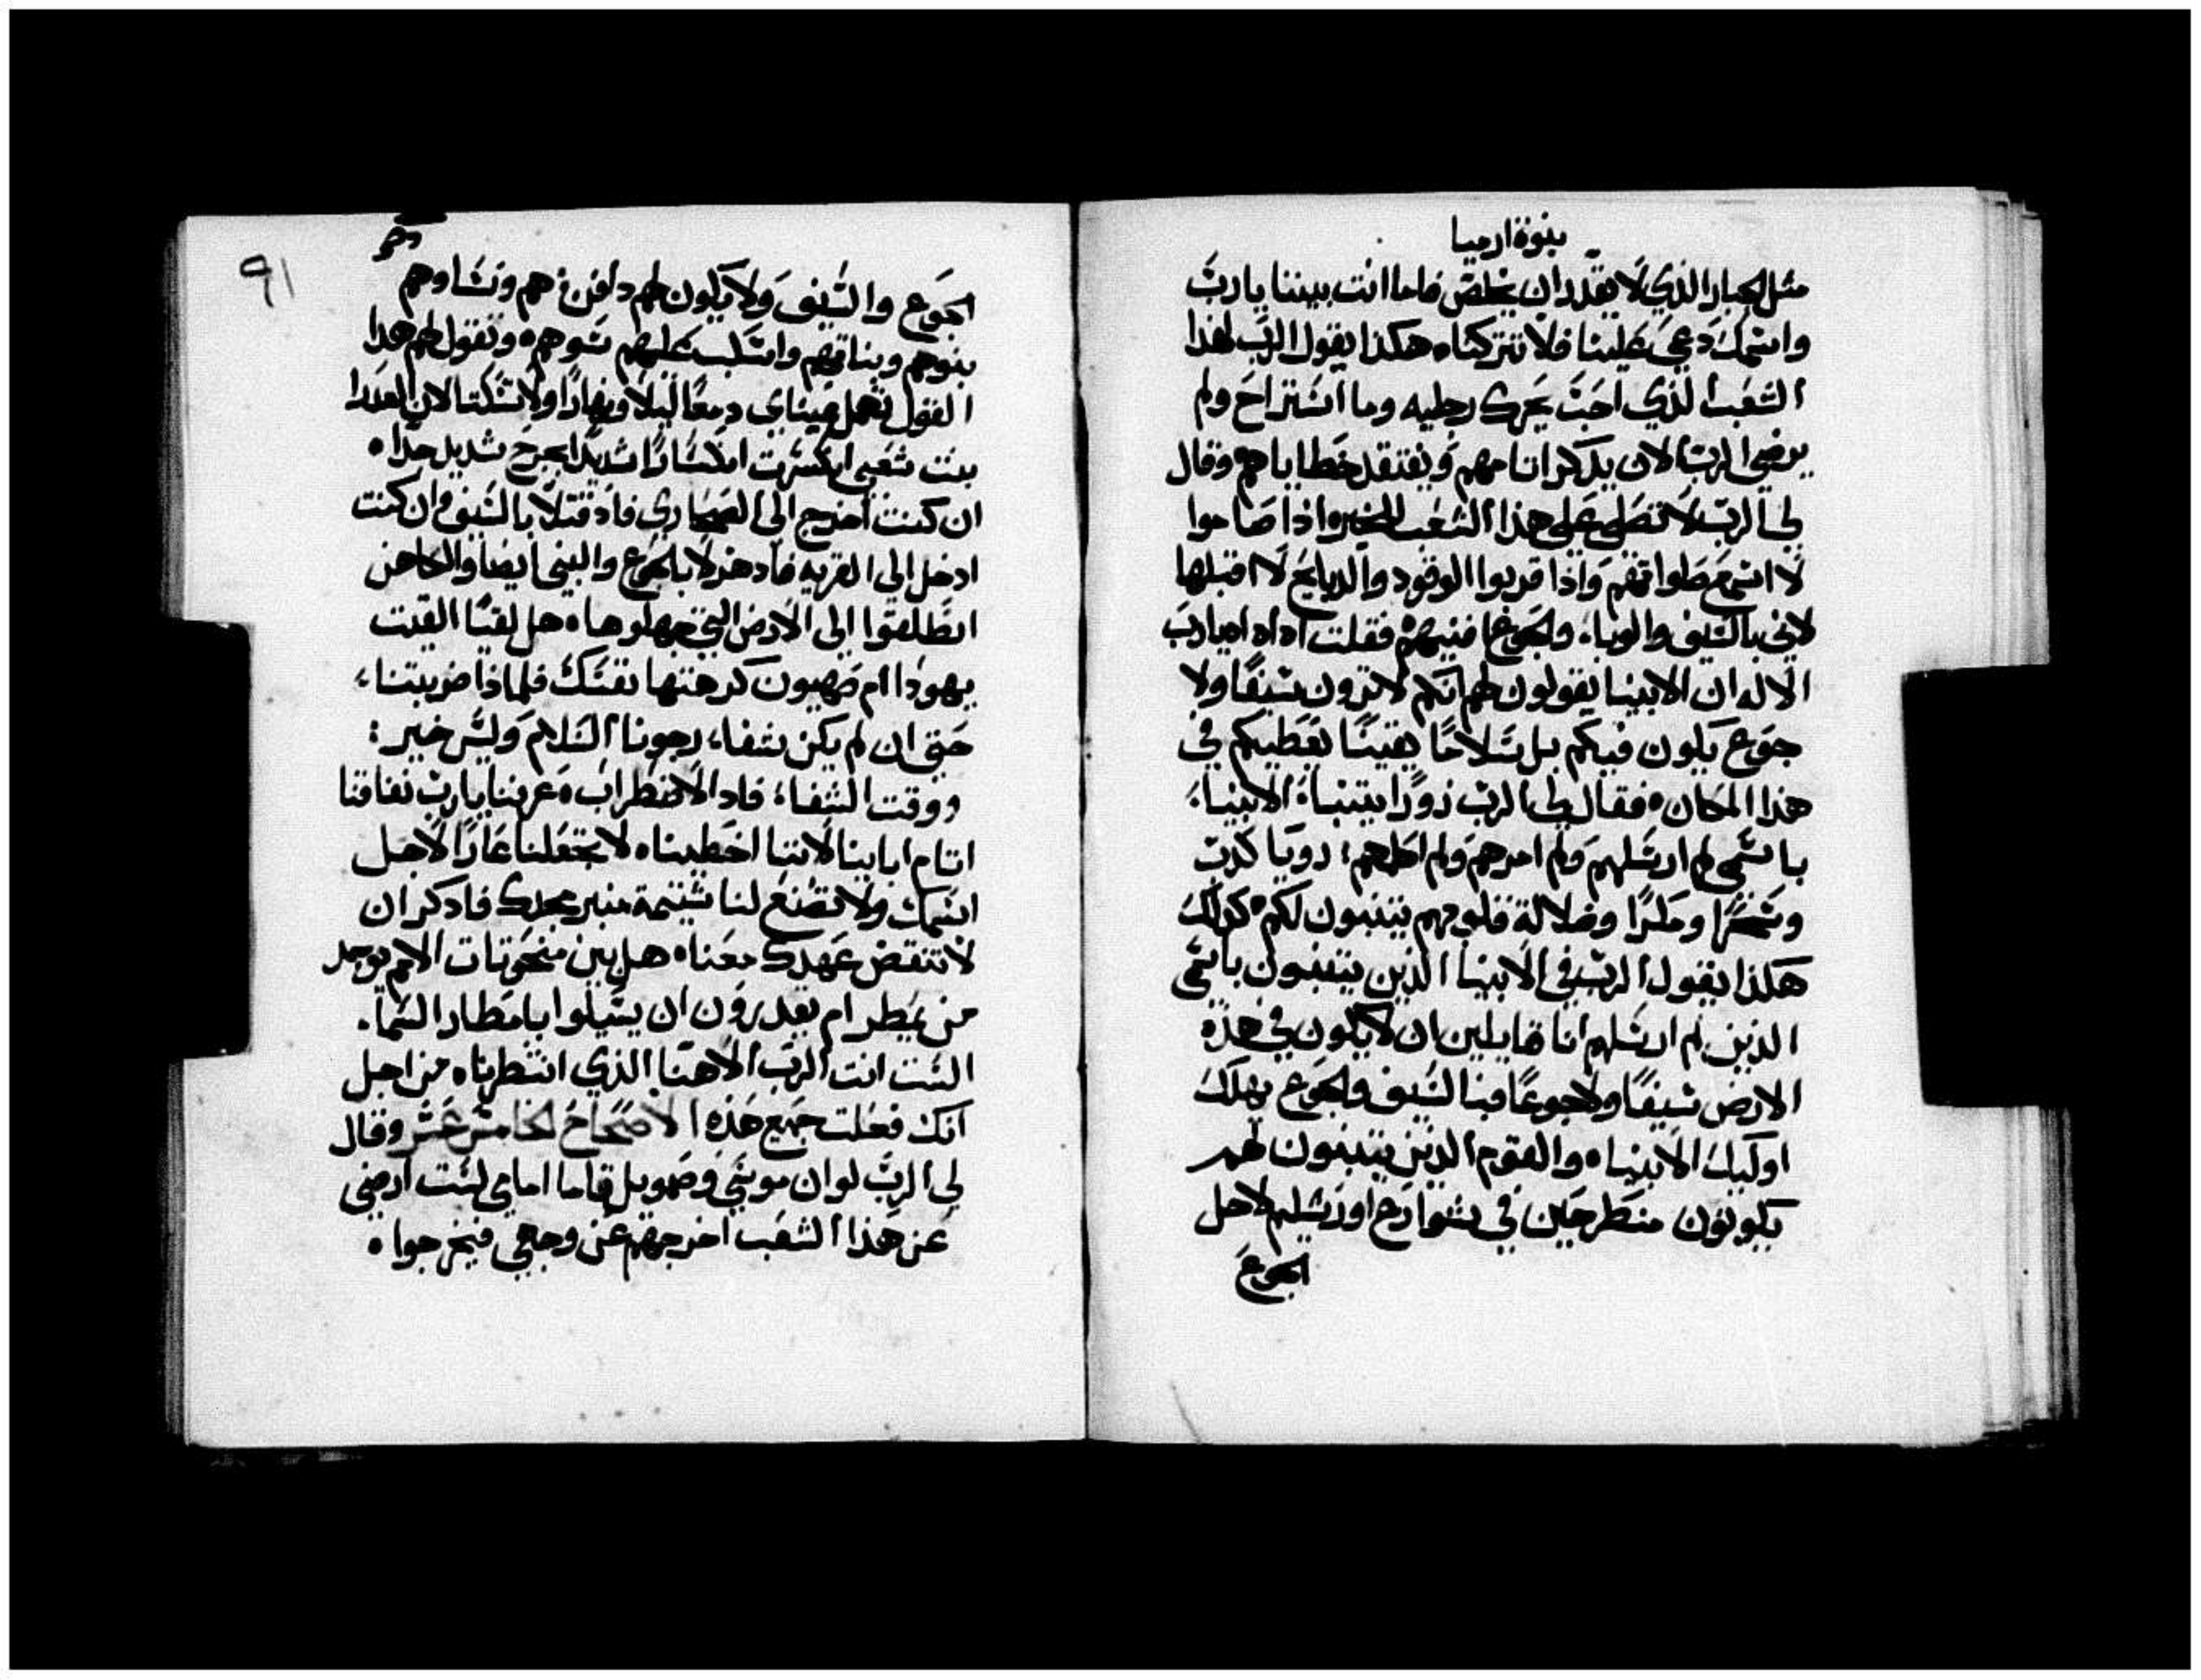 بنوة ارميا
مثل الجبار الذي لا يقدر ان يخلص فاما انت بيننا يا رب
واسمك دعي علينا فلا تتركنا ه هكذا يقول الرب لهذا
الشعب الذي احب يحرك رجليه وما استراح ولم
يرضي الرب الان يدكر اتامهم ويفتقد خطاياهم وقال
لي الرب لا تصلي علي هذا الشعب للخير واذا صاموا
لا اسمع صلواتهم واذا قربوا الوقود والدبايح لا اقبلها
لاني بالسيف والوباء والجوع افنيهم ه فقلت اه اه اه يا رب
الاله ان الانبيا يقولون لهم انكم لا ترون سيفا ولا
جوع يكون فيكم بل سلاما يقينا يعطيكم في
هذا المكان ه فقال لي الرب زورا يتنباء الانبياء
باسمي لم ارسلهم ولم امرهم ولم اكلمهم رويا كدب
وسحرا ومكرا وضلالة قلوبهم يتنبون لكم ه كذلك
هكذا يقول الرب في الانبيا الذين يتنبون باسمي
الذين لم ارسلهم انا قايلين ان لا يكون في هذه
الارض سيفا ولا جوعا فبالسيف والجوع يهلك
اوليك الانبياه والقوم الذين يتنبون لهم
يكونون منطرحين في شوارع اورشليم لاجل
الجوع
٩١
الجوع والسيف ولا يكون لهم دافن هم ونساوهم
بنوهم وبناتهم واسكب عليهم سوهم ه وتقول لهم هدا
القول تهمل عيناي دمعا ليلا ونهارا ولا تسكتا لان العدرا
بنت شعبي انكسرت انكسارا شديدا بجرح شديد جدا ه
ان كنت اخرج الي الصحاري فاد قتلا بالسيف وان كنت
ادخل الي القريه فاد هزلا بالجوع والنبي ايضا والكاهن
انطلقوا الي الارض التي جهلوها ه هل لقيتا القيت
يهودا ام صهيون كرهتها نفسك فلماذا ضربتنا
حتي ان لم يكن شفاء رجونا السلام وليس خير
ووقت الشفاء فاد الاضطراب ه عرفنا يا رب نفاقنا
اتام ابابينا لاننا اخطيناه لا تجعلنا عارا لاجل
اسمك ولا تصنع لنا شتيمة منبر مجدك فادكر ان
لا تنقض عهدك معنا ه هل بين منحوتات الامم يوجد
من يمطر ام يقدرون ان يسيلوا بامطار السما
الست انت الرب الاهنا الذي انتظرناه من اجل
انك فعلت جميع هذه الاصحاح الخامس عشر وقال
لي الرب لو ان موسي وصمويل قاما امامي لست ارضي
عن هذا الشعب اخرجهم عن وجهي فيخرجوا ه